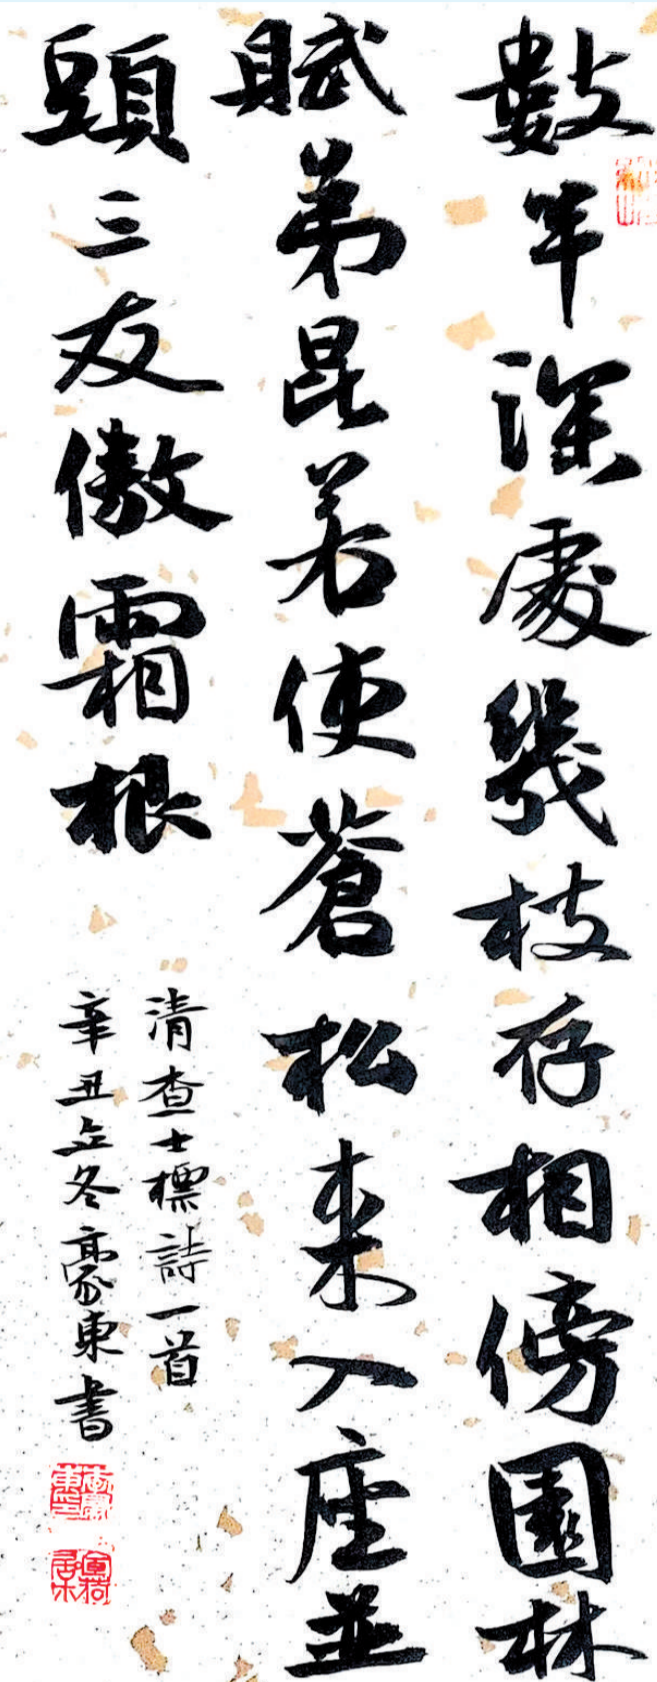 數竿深處幾枝存相傍園林
賦弟昆若使蒼松來入座並
頭三友傲霜根
清查士標詩一首
辛丑立冬豪東書